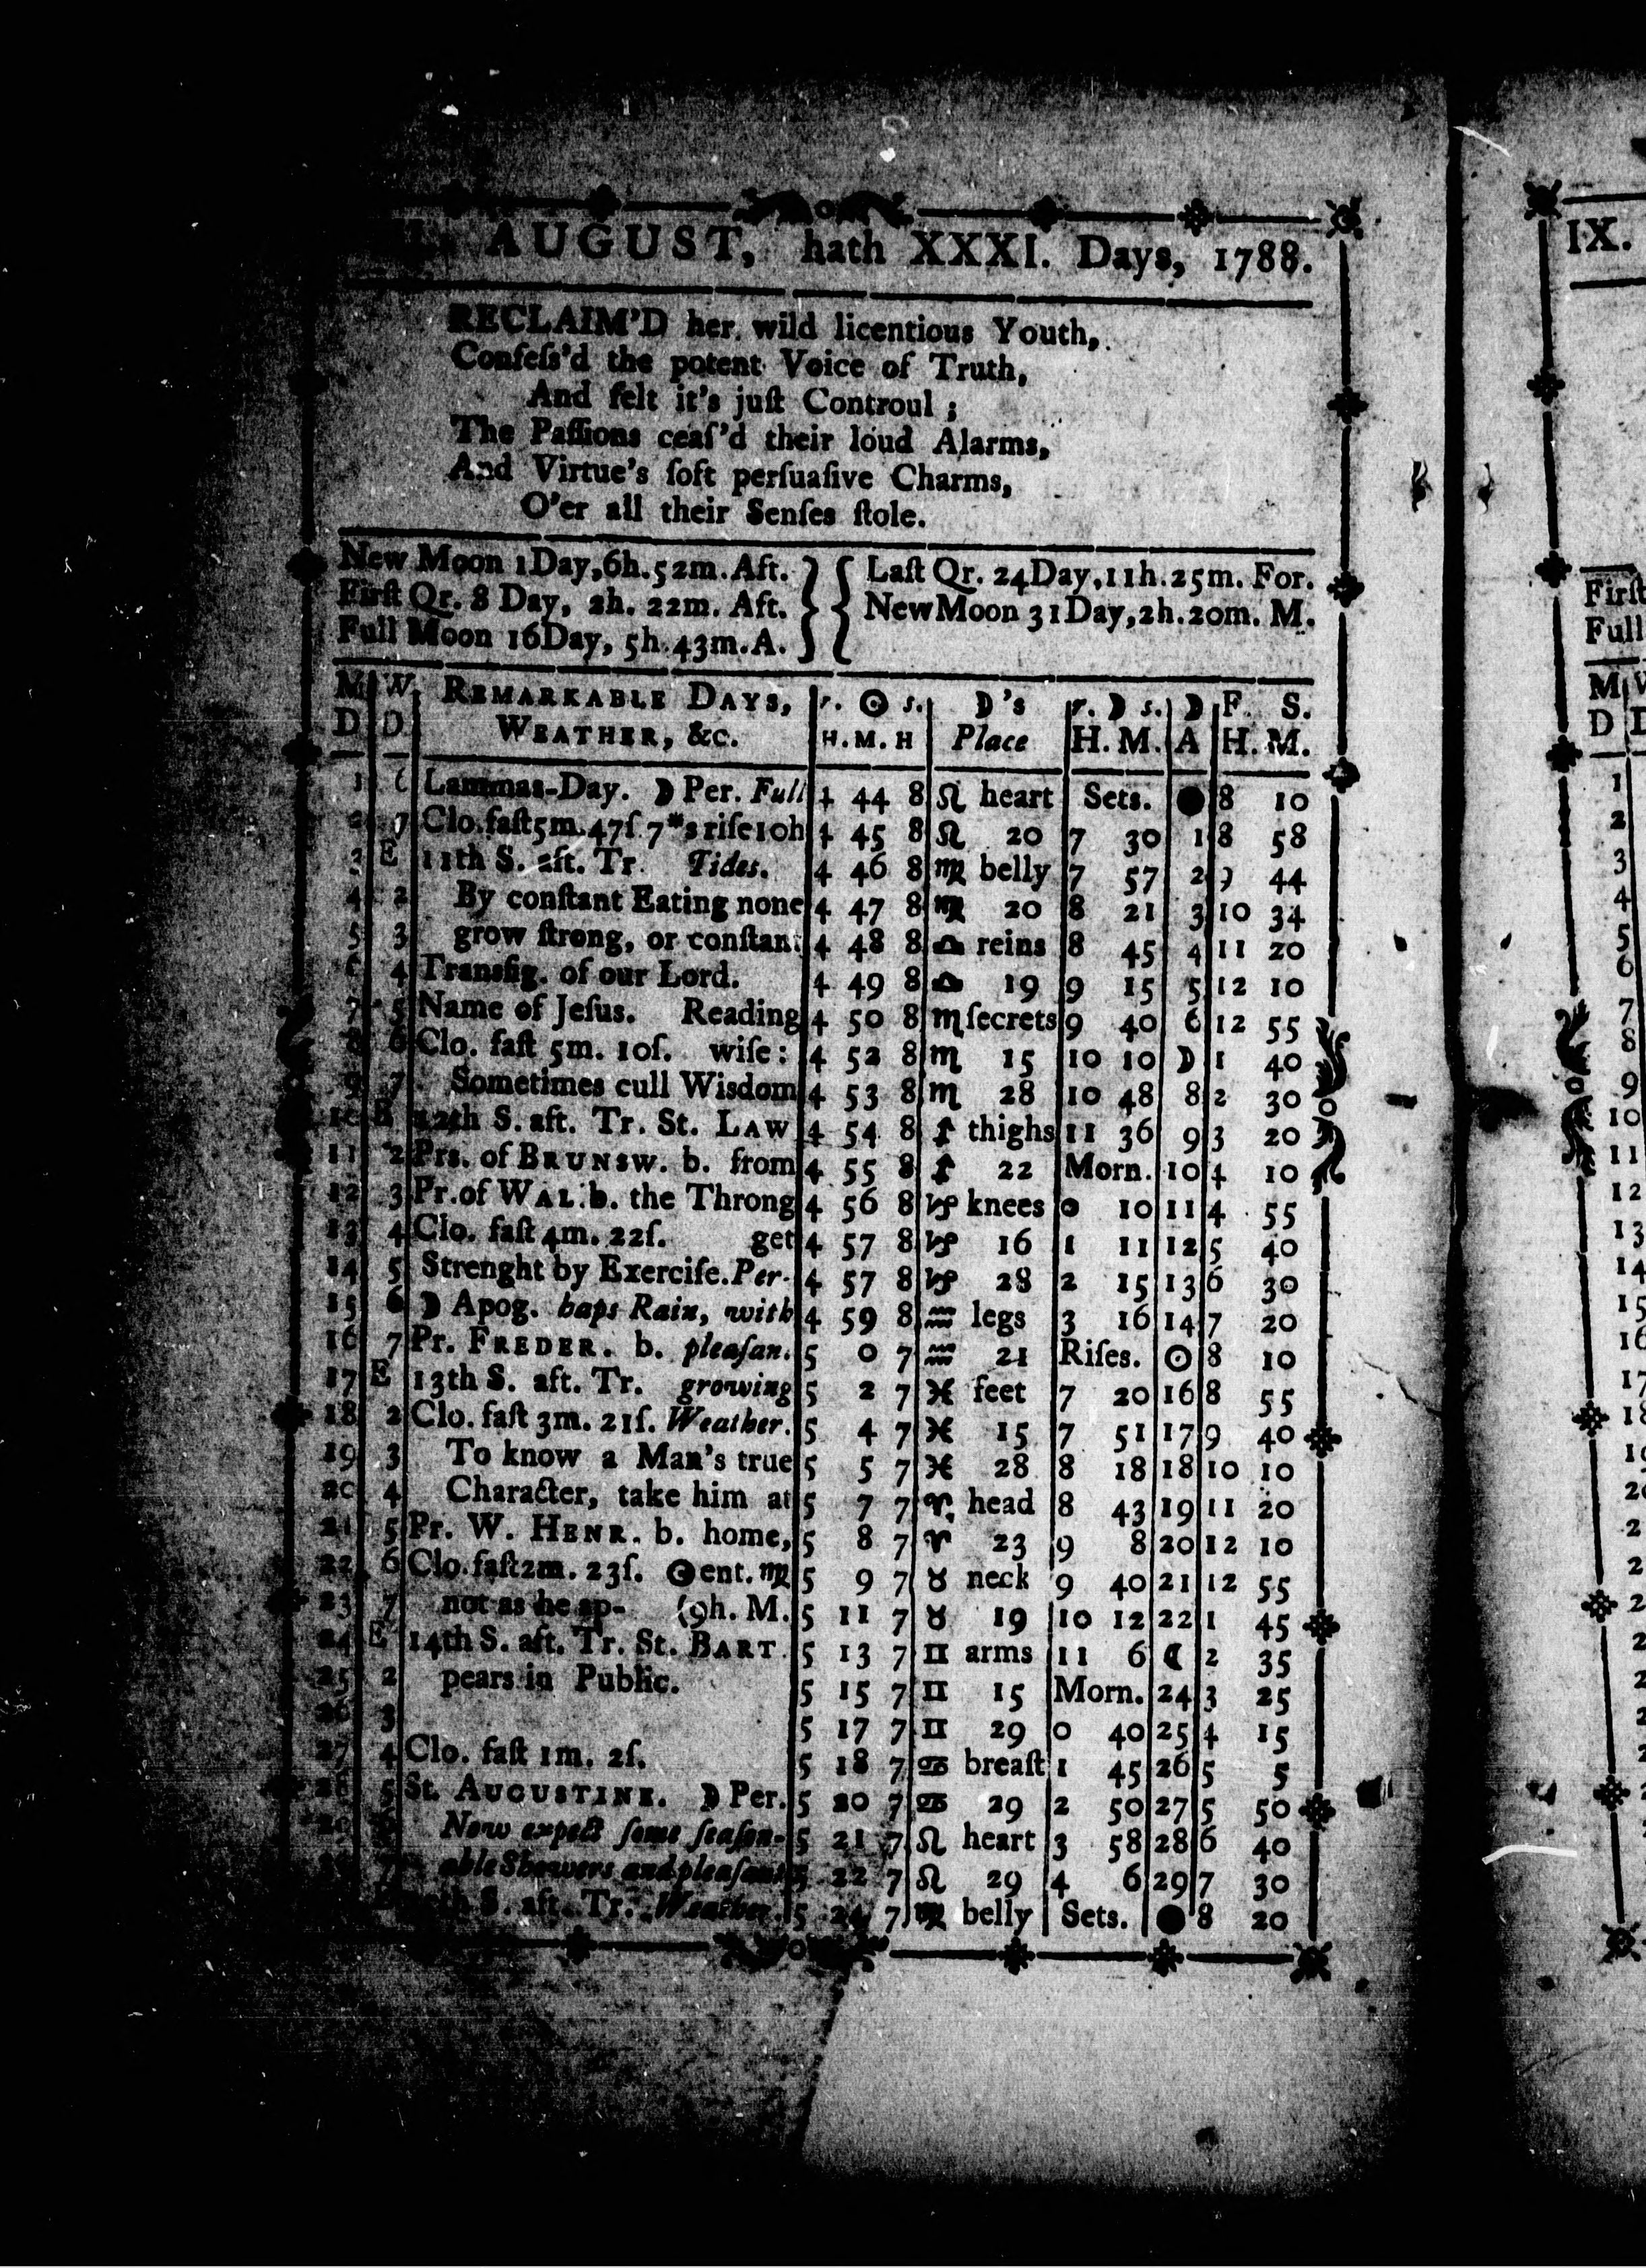 AUGUST, hath XXXI. Days, 1788.
RECLAIM'D her wild licentious Youth,
Confeſs'd the potent Voice of Truth,
And felt it's juſt Controul ;
The Paſſions ceaſ'd their loud Alarms,
And Virtue's ſoft perſuaſive Charms,
O'er all their Senſes ſtole.
New Moon 1Day,6h.52m.Aft. } { Laſt Qr. 24Day,11h.25m. For.
Firſt Qr. 8 Day, 2h. 22m. Aft. } { NewMoon 31Day,2h.20m. M.
Full Moon 16Day, 5h.43m.A.
M W. REMARKABLE DAYS, r. ☉ s. ☽'s r. ☽ s. ☽ F. S.
D D WEATHER, &c. H. M. H Place H. M. A H. M.
1 Lammas-Day. ☽ Per. Full 4 44 8 ♌ heart Sets. ● 8 10
2 7 Clo.faſt5m.47ſ.7*s riſe10h 4 45 8 ♌ 20 7 30 1 8 58
3 E 11th S. aft. Tr. Tides. 4 46 8 ♍ belly 7 57 2 9 44
4 2 By conſtant Eating none 4 47 8 ♍ 20 8 21 3 10 34
5 3 grow ſtrong, or conſtant 4 48 8 ♎ reins 8 45 4 11 20
6 4 Transfig. of our Lord. 4 49 8 ♎ 19 9 15 5 12 10
7 5 Name of Jeſus. Reading 4 50 8 ♏ ſecrets 9 40 6 12 55
8 6 Clo. faſt 5m. 10ſ. wiſe: 4 52 8 ♏ 15 10 10 ☽ 1 40
9 7 Sometimes cull Wisdom 4 53 8 ♏ 28 10 48 8 2 30
10 E 12th S. aft. Tr. St. LAW 4 54 8 ♐ thighs 11 36 9 3 20
11 2 Prs. of BRUNSW. b. from 4 55 8 ♐ 22 Morn. 10 4 10
12 3 Pr.of WAL.b. the Throng 4 56 8 ♑ knees 0 10 11 4 55
13 4 Clo. faſt 4m. 22ſ. get 4 57 8 ♑ 16 1 11 12 5 40
14 5 Strenght by Exerciſe.Per- 4 57 8 ♑ 28 2 15 13 6 30
15 6 ☽ Apog. haps Rain, with 4 59 8 ♒ legs 3 16 14 7 20
16 7 Pr. FREDER. b. pleaſan. 5 0 7 ♒ 21 Riſes. ☉ 8 10
17 E 13th S. aft. Tr. growing 5 2 7 ♓ feet 7 20 16 8 55
18 2 Clo. faſt 3m. 21ſ. Weather. 5 4 7 ♓ 15 7 51 17 9 40
19 3 To know a Man's true 5 5 7 ♓ 28 8 18 18 10 10
20 4 Character, take him at 5 7 7 ♈ head 8 43 19 11 20
21 5 Pr. W. HENR. b. home, 5 8 7 ♈ 23 9 8 20 12 10
22 6 Clo.faſt2m. 23ſ. ☉ent. ♍ 5 9 7 ♉ neck 9 40 21 12 55
23 7 not as he ap- (9h. M. 5 11 7 ♉ 19 10 12 22 1 45
24 E 14th S. aft. Tr. St. BART. 5 13 7 ♊ arms 11 6 ☾ 2 35
25 2 pears in Public. 5 15 7 ♊ 15 Morn. 24 3 25
26 3 5 17 7 ♊ 29 0 40 25 4 15
27 4 Clo. faſt 1m. 2ſ. 5 18 7 ♋ breaſt 1 45 26 5 5
28 5 St. AUGUSTINE. ☽ Per. 5 20 7 ♋ 29 2 50 27 5 50
Now expect ſome ſeaſon- 5 21 7 ♌ heart 3 58 28 6 40
7 able Showers and pleaſant 5 22 7 ♌ 29 4 6 29 7 30
S. aft. Tr. Weather. 5 24 7 ♍ belly Sets. ● 8 20
IX.
Firſt
Full
M
D
1
2
3
4
5
6
7
8
9
10
11
12
13
14
15
16
17